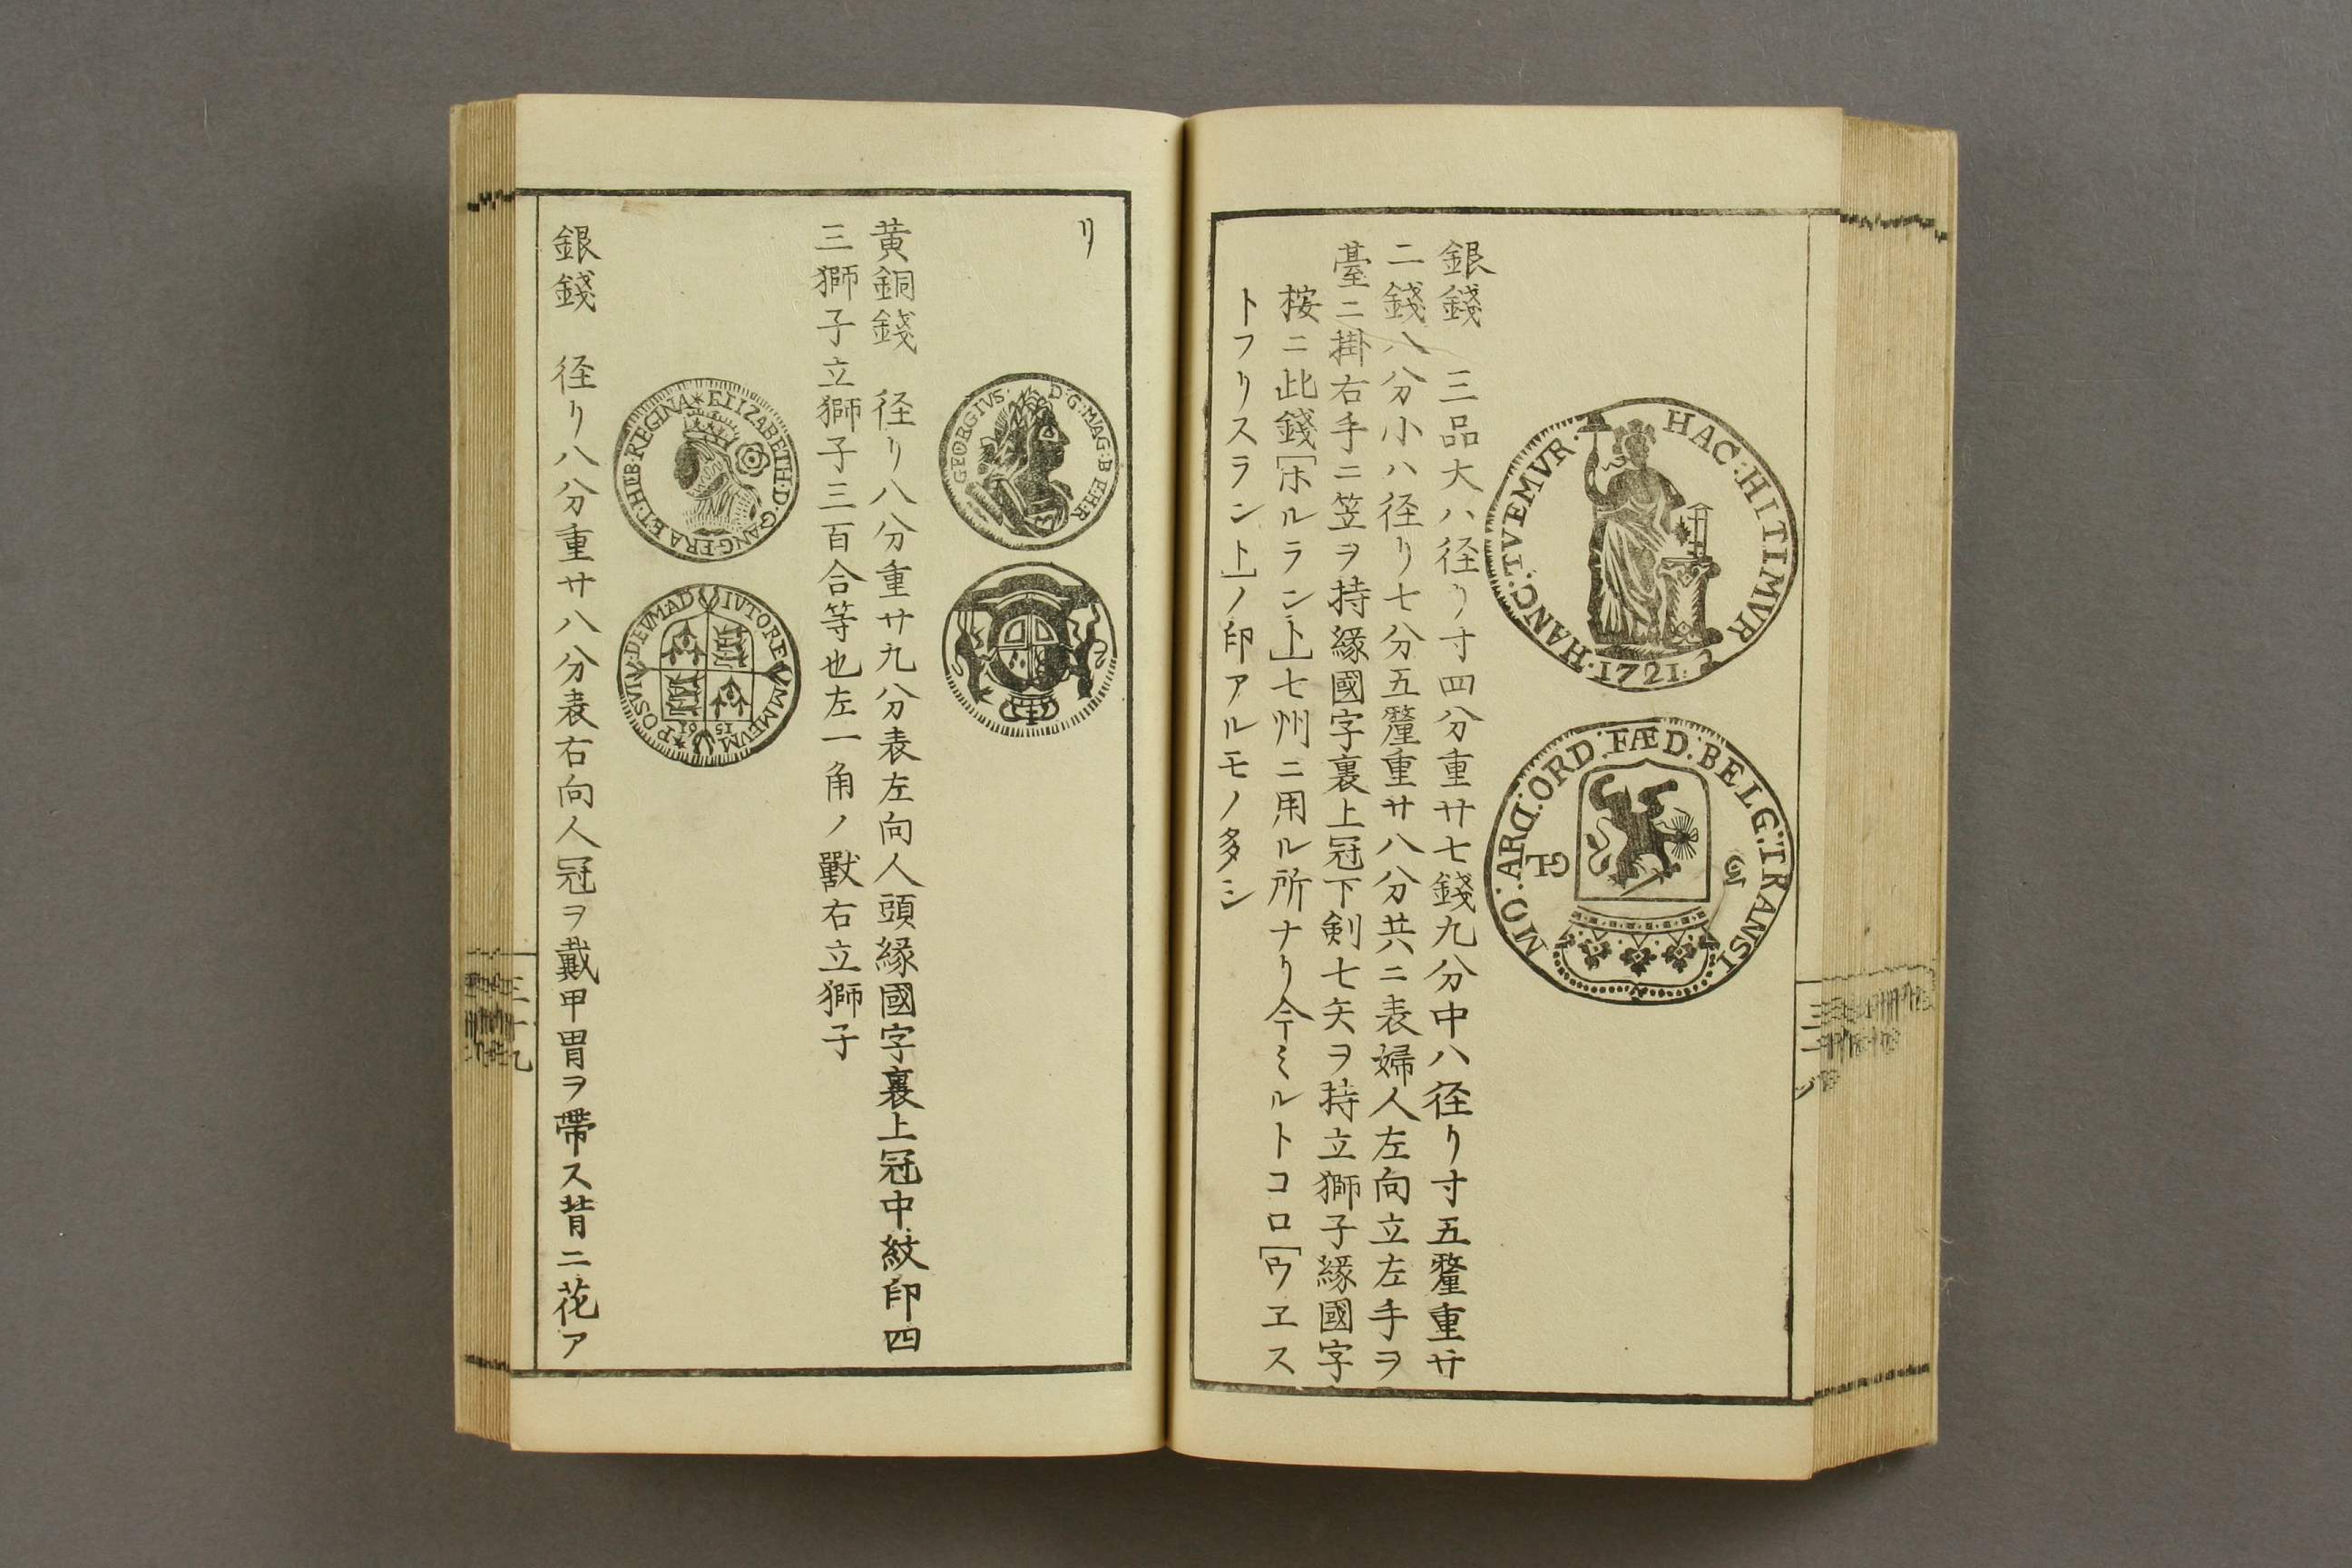 HAC:HITIMVR
HANC:TVEMVR·
·1721·
MO:ARG:ORD:FÆD:BELG:TRANSI
GL
銀錢　三品大ハ径リ寸四分重廿七錢九分中ハ径リ寸五釐重廿
二錢八分小ハ径リ七分五釐重廿八分共ニ表婦人左向立左手ヲ
臺ニ掛右手ニ笠ヲ持縁國字裏上冠下剣七矢ヲ持立獅子縁國字
桉ニ此錢[ホルラント]七州ニ用ル所ナリ今ミルトコロ[ウエス
トフリスラント]ノ印アルモノ多シ
リ
GEORGIVS· D·G·MAG·B
黄銅錢　径リ八分重廿九分表左向人頭縁國字裏上冠中紋印四
三獅子立獅子三百合等也左一角ノ獸右立獅子
ELIZABETH·D·G·ANG·FRA·ET·HEB·REGINA
POSVIV·DEVMAD IVTORE MMEVM
15 61
銀錢　径リ八分重廿八分表右向人冠ヲ戴甲胃ヲ帶ス背ニ花ア
三十九